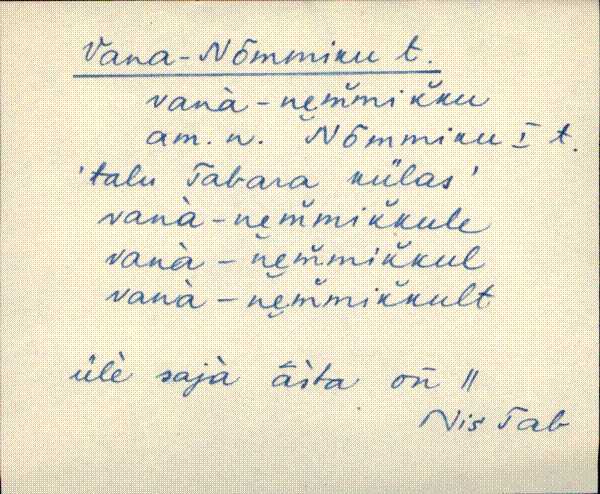 Vana-Nõmmiku t.
vanà-nem̆mik̆ku
am. n. Nõmmiku I t.
'talu Tabara külas'
vanà-nem̆mik̆kule
vanà-nem̆mik̆kul
vanà-nem̆mik̆kult
ülè sajà āsta on̄ ||
Nis Tab